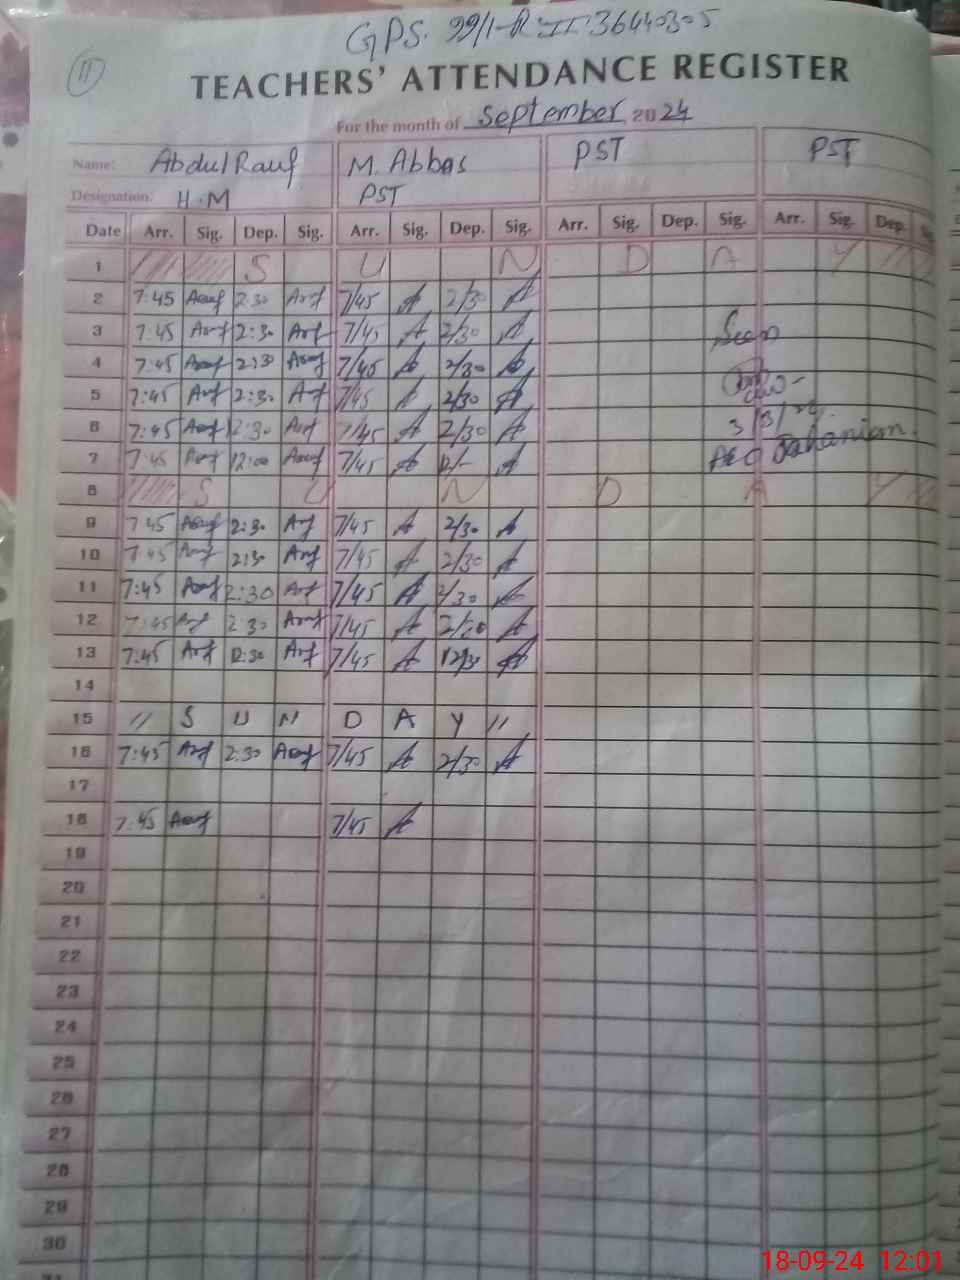 GPS. 99/1-R II 36440305
11
TEACHERS' ATTENDANCE REGISTER
For the month of September 2024
Name: Abdul Rauf M. Abbas PST PST
Designation. H.M PST
Date Arr. Sig. Dep. Sig. Arr. Sig. Dep. Sig. Arr. Sig. Dep. Sig. Arr. Sig. Dep.
1 S U N D A Y
2 7:45 2:30 7/45 2/30
3 7:45 2:30 7/45 2/30
4 7:45 2:30 7/45 2/30
5 7:45 2:30 7/45 2/30
6 7:45 2:30 7/45 2/30
7 7:45 12:00 7/45 12/-
8 S U N D A Y
9 7:45 2:30 7/45 2/30
10 7:45 2:30 7/45 2/30
11 7:45 2:30 7/45 2/30
12 7:45 2:30 7/45 2/30
13 7:45 12:30 7/45 12/30
14
15 // S U N D A Y //
16 7:45 2:30 7/45 2/30
17
18 7:45 7/45
19
20
21
22
23
24
25
26
27
28
29
30
Seen
AEO Jahanian.
18-09-24 12:01